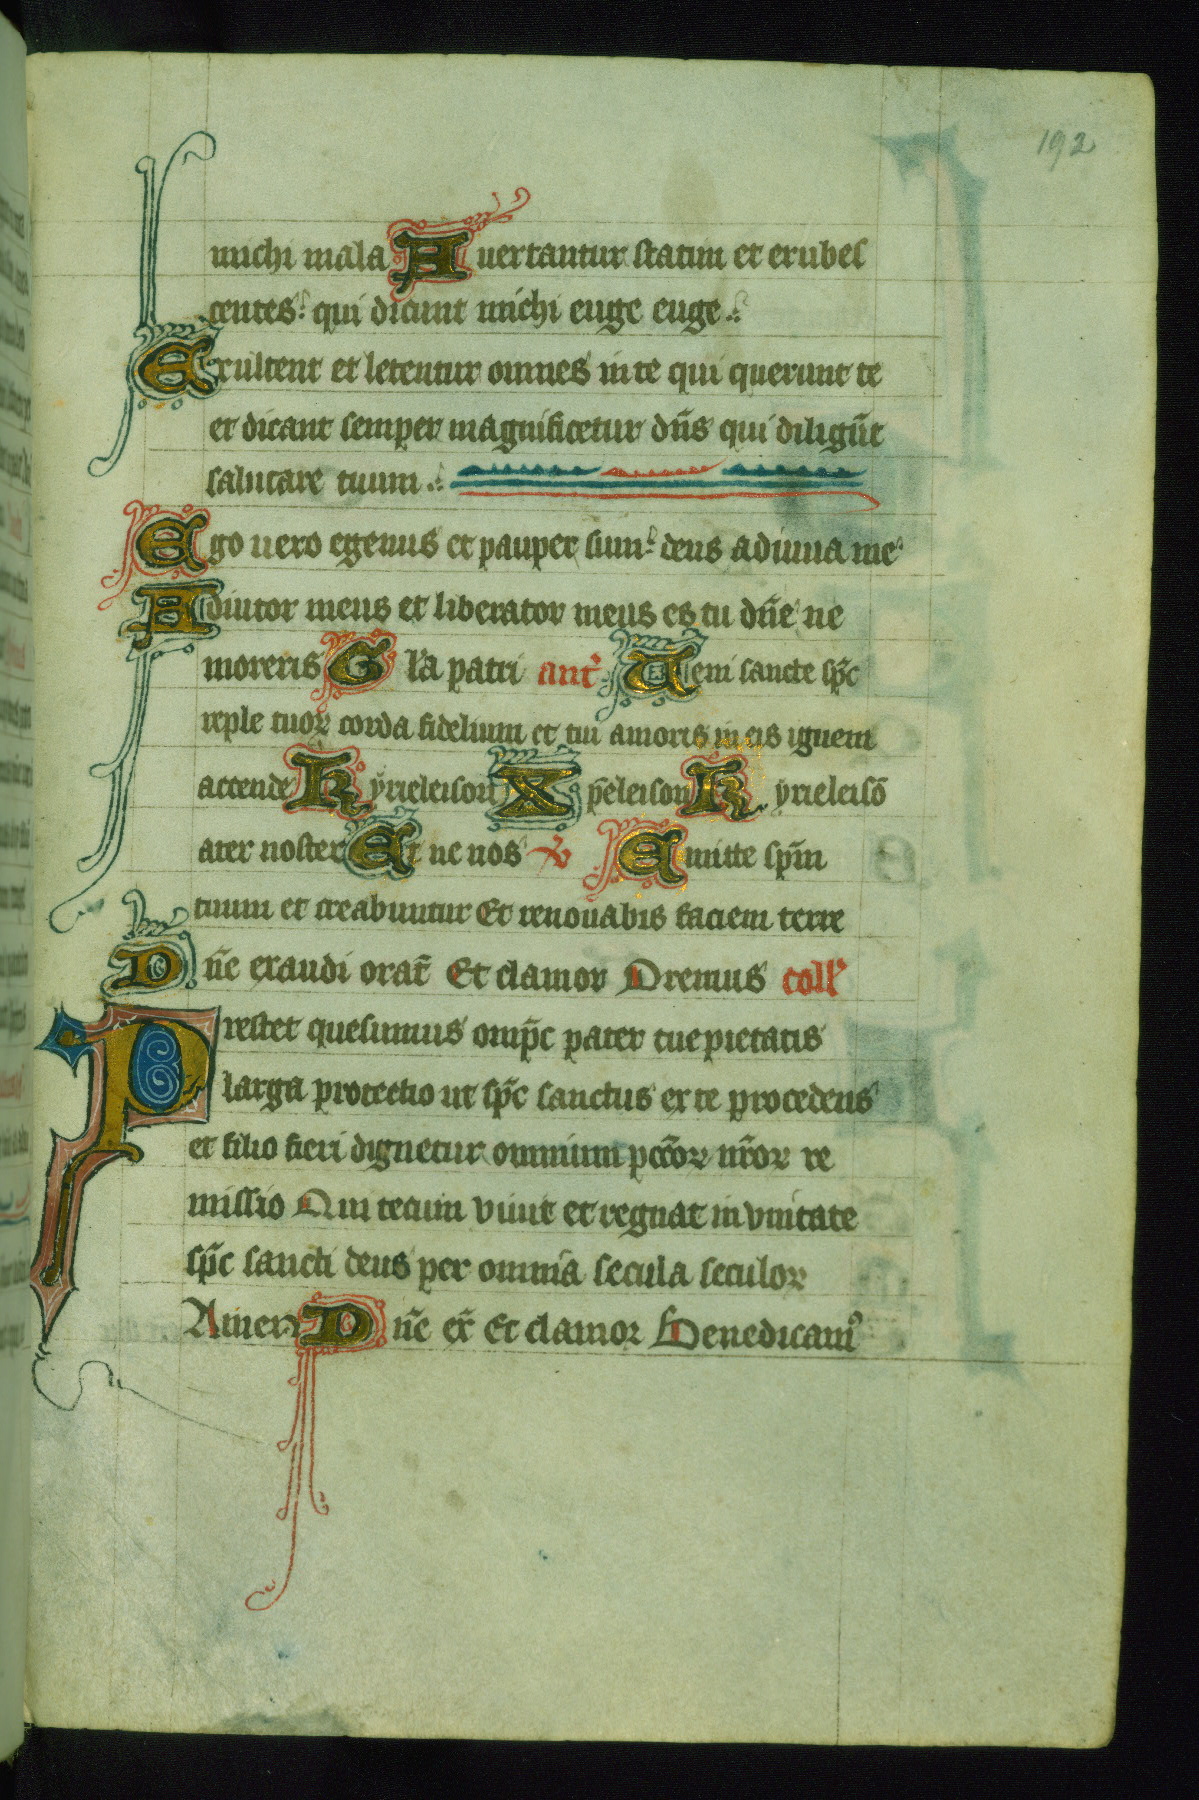 192
michi mala Auertantur statim et erubes
centes: qui dicunt michi euge euge.
Exultent et letentur omnes in te qui querunt te
et dicant semper magnificetur dñs qui diligũt
salutare tuum.
Ego uero egenus et pauper sum: deus adiuua me
Adiutor meus et liberator meus es tu dñe ne
moreris Gl'ia patri ant' Ueni sancte sp̃c
reple tuoꝝ corda fidelium et tui amoris in eis ignem
accende Kyrieleison Xp̃eleison Kyrieleisõ
ater noster Et ne nos ℣ Emitte sp̃m
tuum et creabuntur Et renouabis faciem terre
Dñe exaudi orat̃ Et clamor Oremus coll'
Prestet quesumus omp̃c pater tue pietatis
larga protectio ut sp̃c sanctus ex te procedens
et filio fieri dignetur omnium pcc̃oꝝ nr̃oꝝ re
missio Qui tecum viuit et regnat in vnitate
sp̃c sancti deus per omnia secula seculoꝝ
Amen Dñe ex̃ Et clamor Benedicamꝰ